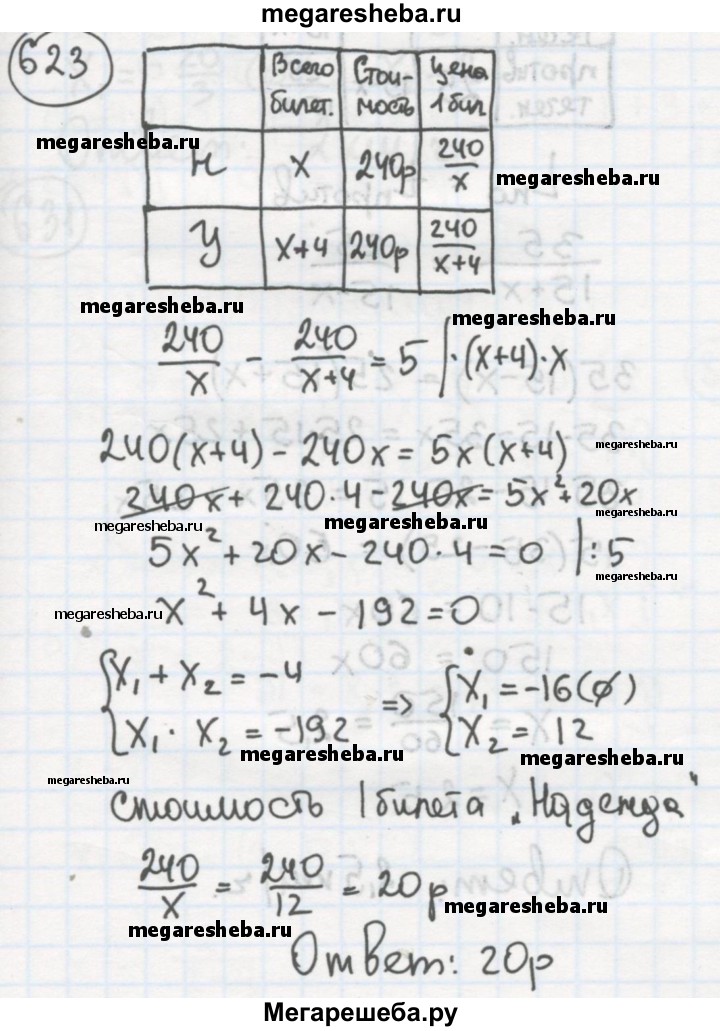 megaresheba.ru
623
Всего билет. Стои-мость Цена 1 бил
megaresheba.ru
Н x 240р 240/x
megaresheba.ru
У x+4 240р 240/(x+4)
megaresheba.ru
megaresheba.ru
240/x - 240/(x+4) = 5 | ·(x+4)·x
240(x+4) - 240x = 5x(x+4)
megaresheba.ru
240x + 240·4 - 240x = 5x² + 20x
megaresheba.ru
megaresheba.ru
megaresheba.ru
5x² + 20x - 240·4 = 0 | :5
megaresheba.ru
megaresheba.ru
x² + 4x - 192 = 0
{ x₁ + x₂ = -4 => { x₁ = -16(∅)
{ x₁ · x₂ = -192 { x₂ = 12
megaresheba.ru
megaresheba.ru
megaresheba.ru
Стоимость 1 билета „Надежда"
240/x = 240/12 = 20р
megaresheba.ru
megaresheba.ru
Ответ: 20р
Мегарешеба.ру